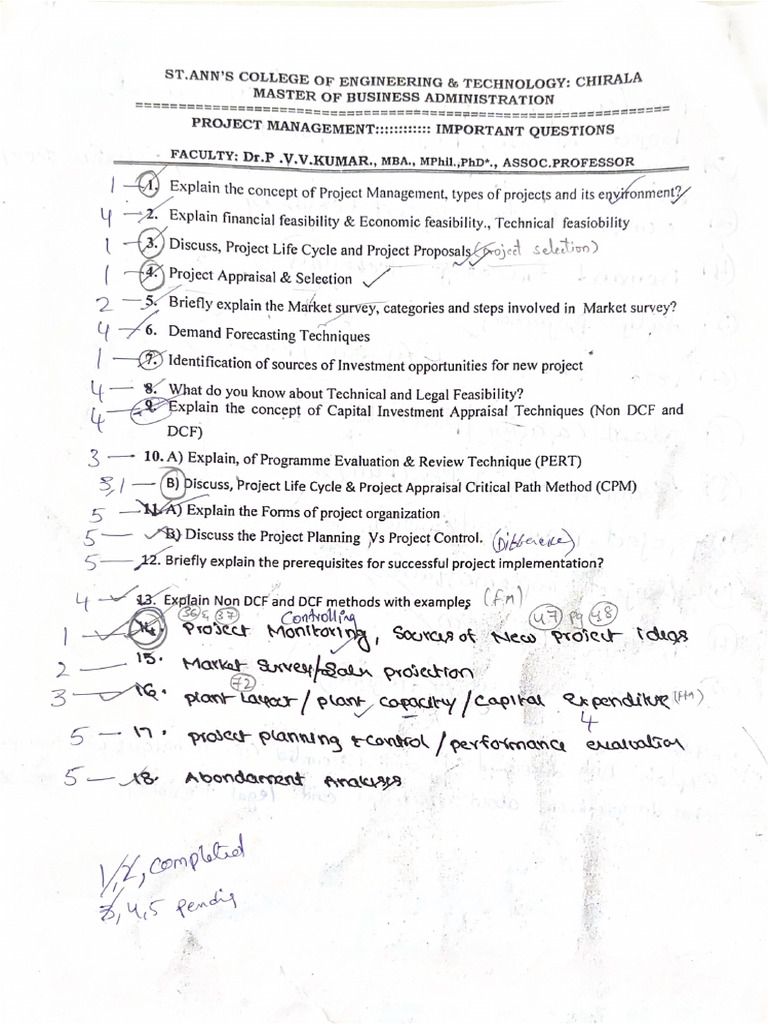 ST.ANN'S COLLEGE OF ENGINEERING & TECHNOLOGY: CHIRALA
MASTER OF BUSINESS ADMINISTRATION
PROJECT MANAGEMENT:::::::::::: IMPORTANT QUESTIONS
FACULTY: Dr.P .V.V.KUMAR., MBA., MPhil.,PhD*., ASSOC.PROFESSOR
1 — 1. Explain the concept of Project Management, types of projects and its environment?
4 — 2. Explain financial feasibility & Economic feasibility., Technical feasiobility
1 — 3. Discuss, Project Life Cycle and Project Proposals (project selection)
1 — 4. Project Appraisal & Selection
2 — 5. Briefly explain the Market survey, categories and steps involved in Market survey?
4 — 6. Demand Forecasting Techniques
1 — 7. Identification of sources of Investment opportunities for new project
4 — 8. What do you know about Technical and Legal Feasibility?
4 — 9. Explain the concept of Capital Investment Appraisal Techniques (Non DCF and
DCF)
3 — 10. A) Explain, of Programme Evaluation & Review Technique (PERT)
3,1 — B) Discuss, Project Life Cycle & Project Appraisal Critical Path Method (CPM)
5 — 11. A) Explain the Forms of project organization
5 — B) Discuss the Project Planning Vs Project Control. (Difference)
5 — 12. Briefly explain the prerequisites for successful project implementation?
4 — 13. Explain Non DCF and DCF methods with examples (f.m)
36 & 37 Controlling 47 pg 48
1 — 14. Project Monitoring, Sources of New Project ideas
2 — 15. Market Survey/Sales projection
72
3 — 16. plant Layout / plant capacity / Capital Expenditure (fm)
4
5 — 17. project planning & control / performance evaluation
5 — 18. Abondament Analyses
1, 2, completed
3, 4, 5 pendig